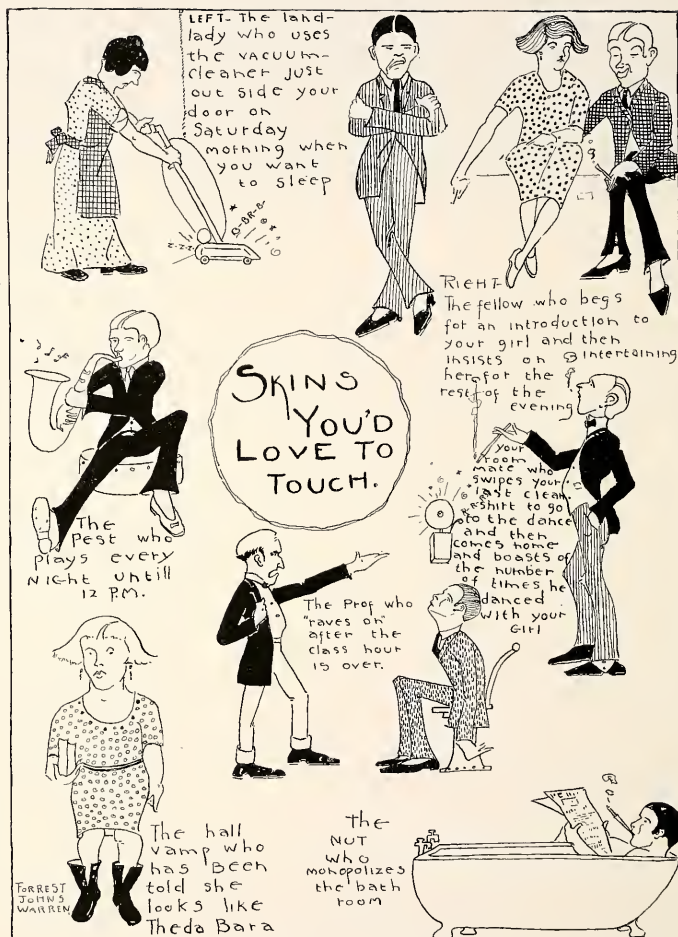 LEFT- The land-
lady who uses
the vacuum-
cleaner just
out side your
door on
Saturday
morning when
you want
to sleep
Z-Z-Z-
B-BR-B-
RIGHT-
The fellow who begs
for an introduction to
your girl and then
insists on intertaining
her for the
rest of the
evening
SKINS
YOU'D
LOVE TO
TOUCH.
The
Pest who
plays every
NIGHT untill
12 P.M.
your
room
mate who
swipes your
last clean
shirt to go
to the dance
and then
comes home
and boasts of
the number
of times he
danced
with your
GIRL
The Prof who
"raves on"
after the
class hour
is over.
The hall
vamp who
has BEEN
told she
looks like
Theda Bara
FORREST
JOHNS
WARREN
The
NUT
who
monopolizes
the bath
room